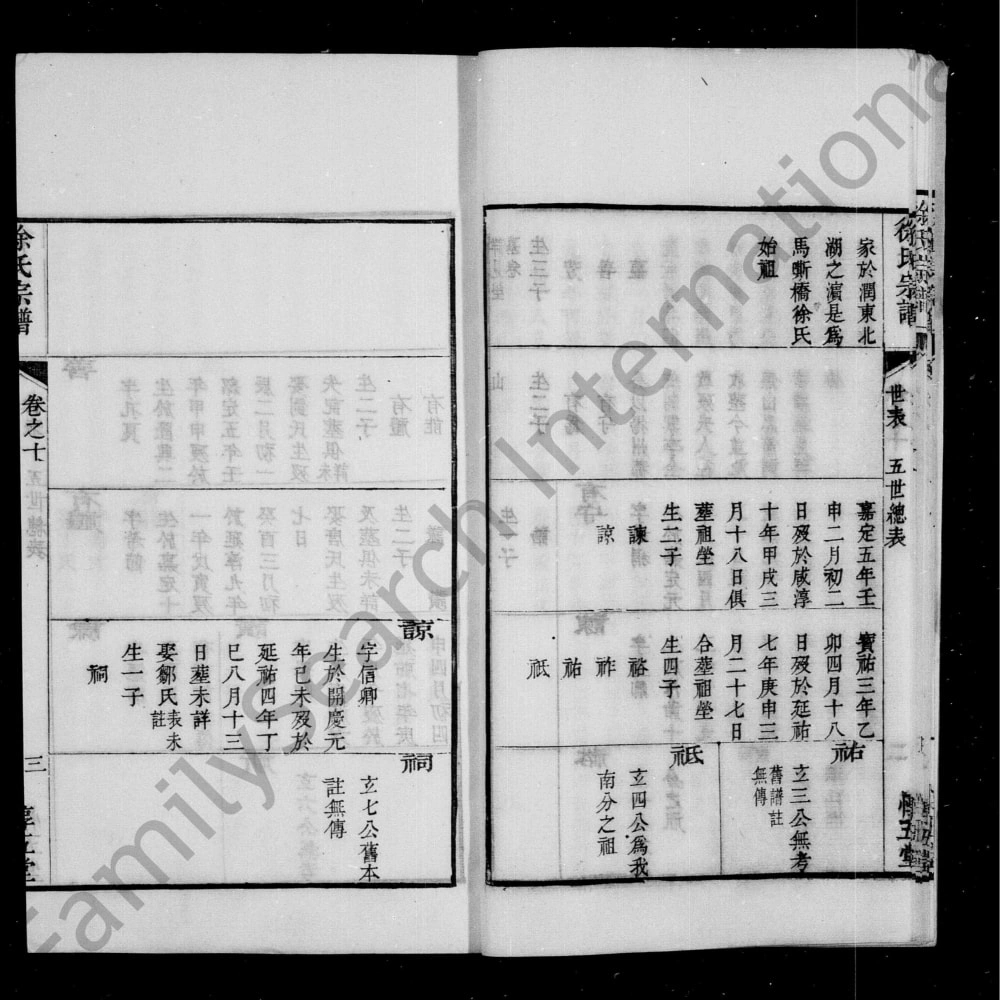 徐氏宗譜
世表
五世總表
惇五堂
家於潤東北
湖之濵是爲
馬嘶橋徐氏
始祖
嘉定五年壬
申二月初二
日歿於咸淳
十年甲戌三
月十八日俱
塟祖塋
生二子
諫
諒
寶祐三年乙
卯四月十八
日歿於延祐
七年庚申三
月二十七日
合塟祖塋
生四子
祫
祚
祐
祇
祐
立三公無考
舊譜註
無傳
祇
立四公爲我
南分之祖
諒
字信卿
生於開慶元
年己未歿於
延祐四年丁
巳八月十三
日塟未詳
娶鄒氏表未
註
生一子
祠
祠
立七公舊本
註無傳
徐氏宗譜
卷之十
五世總表
三
惇五堂
FamilySearch International